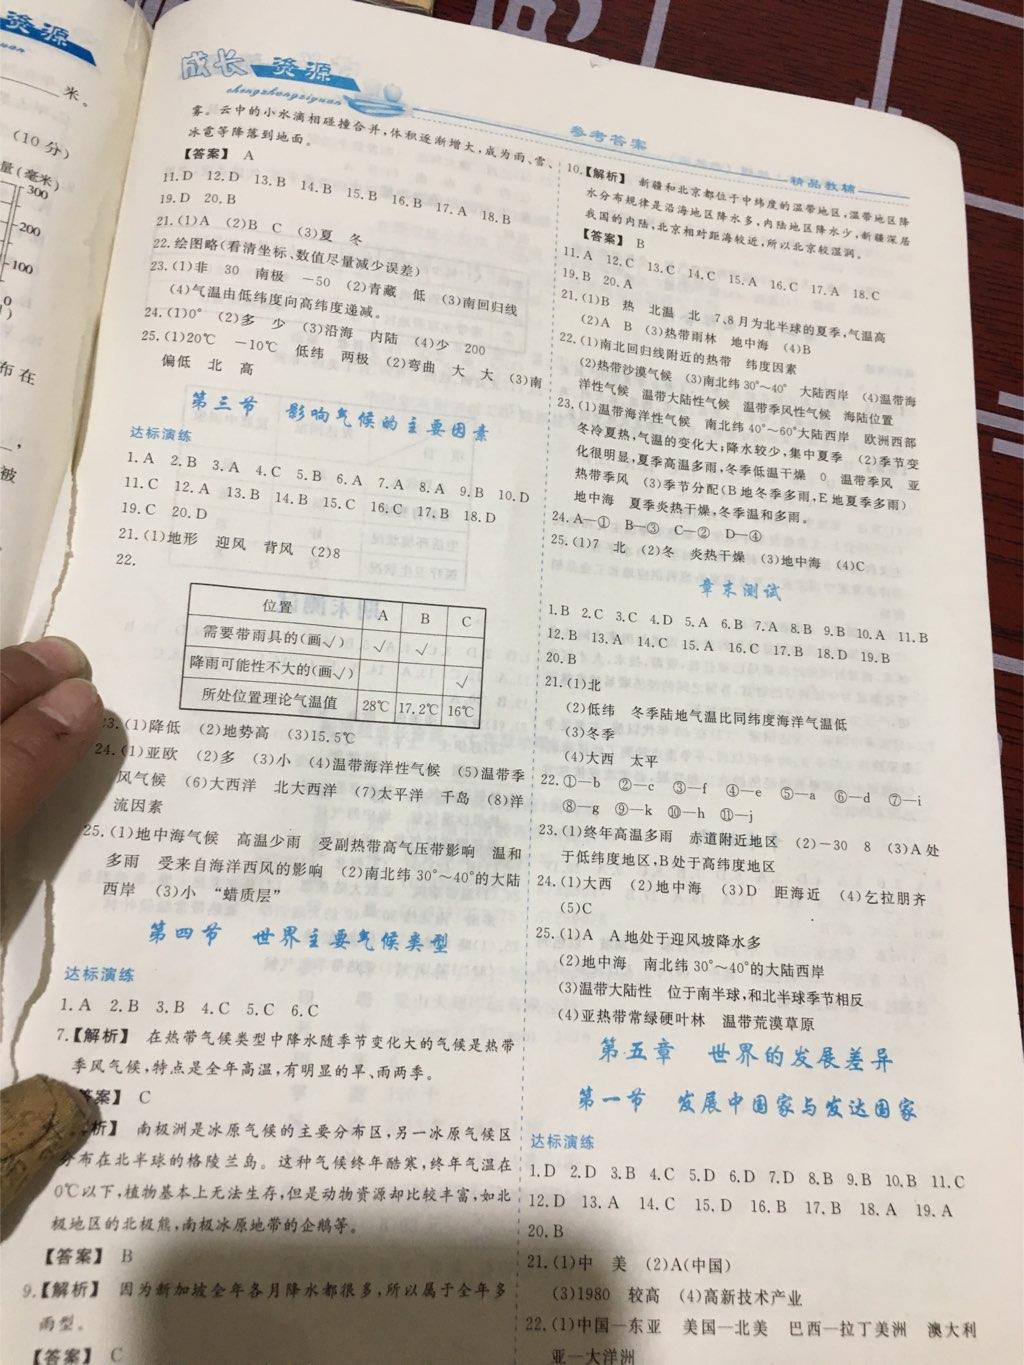 资源
米。
(10分)
量(毫米)
300
200
100
0
布在
被
成长 资源
chengzhangziyuan
参考答案
精品教辅
雾。云中的小水滴相碰撞合并,体积逐渐增大,成为雨、雪、
冰雹等降落到地面。
【答案】 A
11.D 12.D 13.B 14.B 15.B 16.B 17.A 18.B
19.D 20.B
21.(1)A (2)B C (3)夏 冬
22.绘图略(看清坐标、数值尽量减少误差)
23.(1)非 30 南极 -50 (2)青藏 低 (3)南回归线
(4)气温由低纬度向高纬度递减。
24.(1)0° (2)多 少 (3)沿海 内陆 (4)少 200
25.(1)20℃ -10℃ 低纬 两极 (2)弯曲 大 大 (3)南
偏低 北 高
第三节 影响气候的主要因素
达标演练
1.A 2.B 3.A 4.C 5.B 6.A 7.A 8.A 9.B 10.D
11.C 12.A 13.B 14.B 15.C 16.C 17.B 18.D
19.C 20.D
21.(1)地形 迎风 背风 (2)8
22.
位置 A B C
需要带雨具的(画√) √ √
降雨可能性不大的(画√) √
所处位置理论气温值 28℃ 17.2℃ 16℃
3.(1)降低 (2)地势高 (3)15.5℃
24.(1)亚欧 (2)多 (3)小 (4)温带海洋性气候 (5)温带季
风气候 (6)大西洋 北大西洋 (7)太平洋 千岛 (8)洋
流因素
25.(1)地中海气候 高温少雨 受副热带高气压带影响 温和
多雨 受来自海洋西风的影响 (2)南北纬30°~40°的大陆
西岸 (3)小 “蜡质层”
第四节 世界主要气候类型
达标演练
1.A 2.B 3.B 4.C 5.C 6.C
7.【解析】 在热带气候类型中降水随季节变化大的气候是热带
季风气候,特点是全年高温,有明显的旱、雨两季。
答案】 C
析】 南极洲是冰原气候的主要分布区,另一冰原气候区
分布在北半球的格陵兰岛。这种气候终年酷寒,终年气温在
0℃以下,植物基本上无法生存,但是动物资源却比较丰富,如北
极地区的北极熊,南极冰原地带的企鹅等。
【答案】 B
9.【解析】 因为新加坡全年各月降水都很多,所以属于全年多
雨型。
【答案】 C
10.【解析】 新疆和北京都位于中纬度的温带地区,温带地区降
水分布规律是沿海地区降水多,内陆地区降水少,新疆深居
我国的内陆,北京相对距海较近,所以北京较湿润。
【答案】 B
11.A 12.C 13.C 14.C 15.A 16.C 17.A 18.C
19.B 20.A
21.(1)B 热 北温 北 7、8月为北半球的夏季,气温高
(2)A B (3)热带雨林 地中海 (4)B
22.(1)南北回归线附近的热带 纬度因素
(2)热带沙漠气候 (3)南北纬30°~40° 大陆西岸 (4)温带海
洋性气候 温带大陆性气候 温带季风性气候 海陆位置
23.(1)温带海洋性气候 南北纬40°~60°大陆西岸 欧洲西部
冬冷夏热,气温的变化大;降水较少,集中夏季 (2)季节变
化很明显,夏季高温多雨,冬季低温干燥 0 温带季风 亚
热带季风 (3)季节分配(B地冬季多雨,E地夏季多雨)
地中海 夏季炎热干燥,冬季温和多雨。
24.A—① B—③ C—② D—④
25.(1)7 北 (2)冬 炎热干燥 (3)地中海 (4)C
章末测试
1.B 2.C 3.C 4.D 5.A 6.B 7.A 8.B 9.B 10.A 11.B
12.B 13.A 14.C 15.A 16.C 17.B 18.D 19.B
20.B
21.(1)北
(2)低纬 冬季陆地气温比同纬度海洋气温低
(3)冬季
(4)大西 太平
22.①—b ②—c ③—f ④—e ⑤—a ⑥—d ⑦—i
⑧—g ⑨—k ⑩—h ⑪—j
23.(1)终年高温多雨 赤道附近地区 (2)-30 8 (3)A处
于低纬度地区,B处于高纬度地区
24.(1)大西 (2)地中海 (3)D 距海近 (4)乞拉朋齐
(5)C
25.(1)A A地处于迎风坡降水多
(2)地中海 南北纬30°~40°的大陆西岸
(3)温带大陆性 位于南半球,和北半球季节相反
(4)亚热带常绿硬叶林 温带荒漠草原
第五章 世界的发展差异
第一节 发展中国家与发达国家
达标演练
1.D 2.D 3.B 4.C 5.D 6.D 7.D 8.B 9.B 10.B 11.C
12.D 13.A 14.C 15.D 16.B 17.B 18.A 19.A
20.B
21.(1)中 美 (2)A(中国)
(3)1980 较高 (4)高新技术产业
22.(1)中国—东亚 美国—北美 巴西—拉丁美洲 澳大利
亚—大洋洲